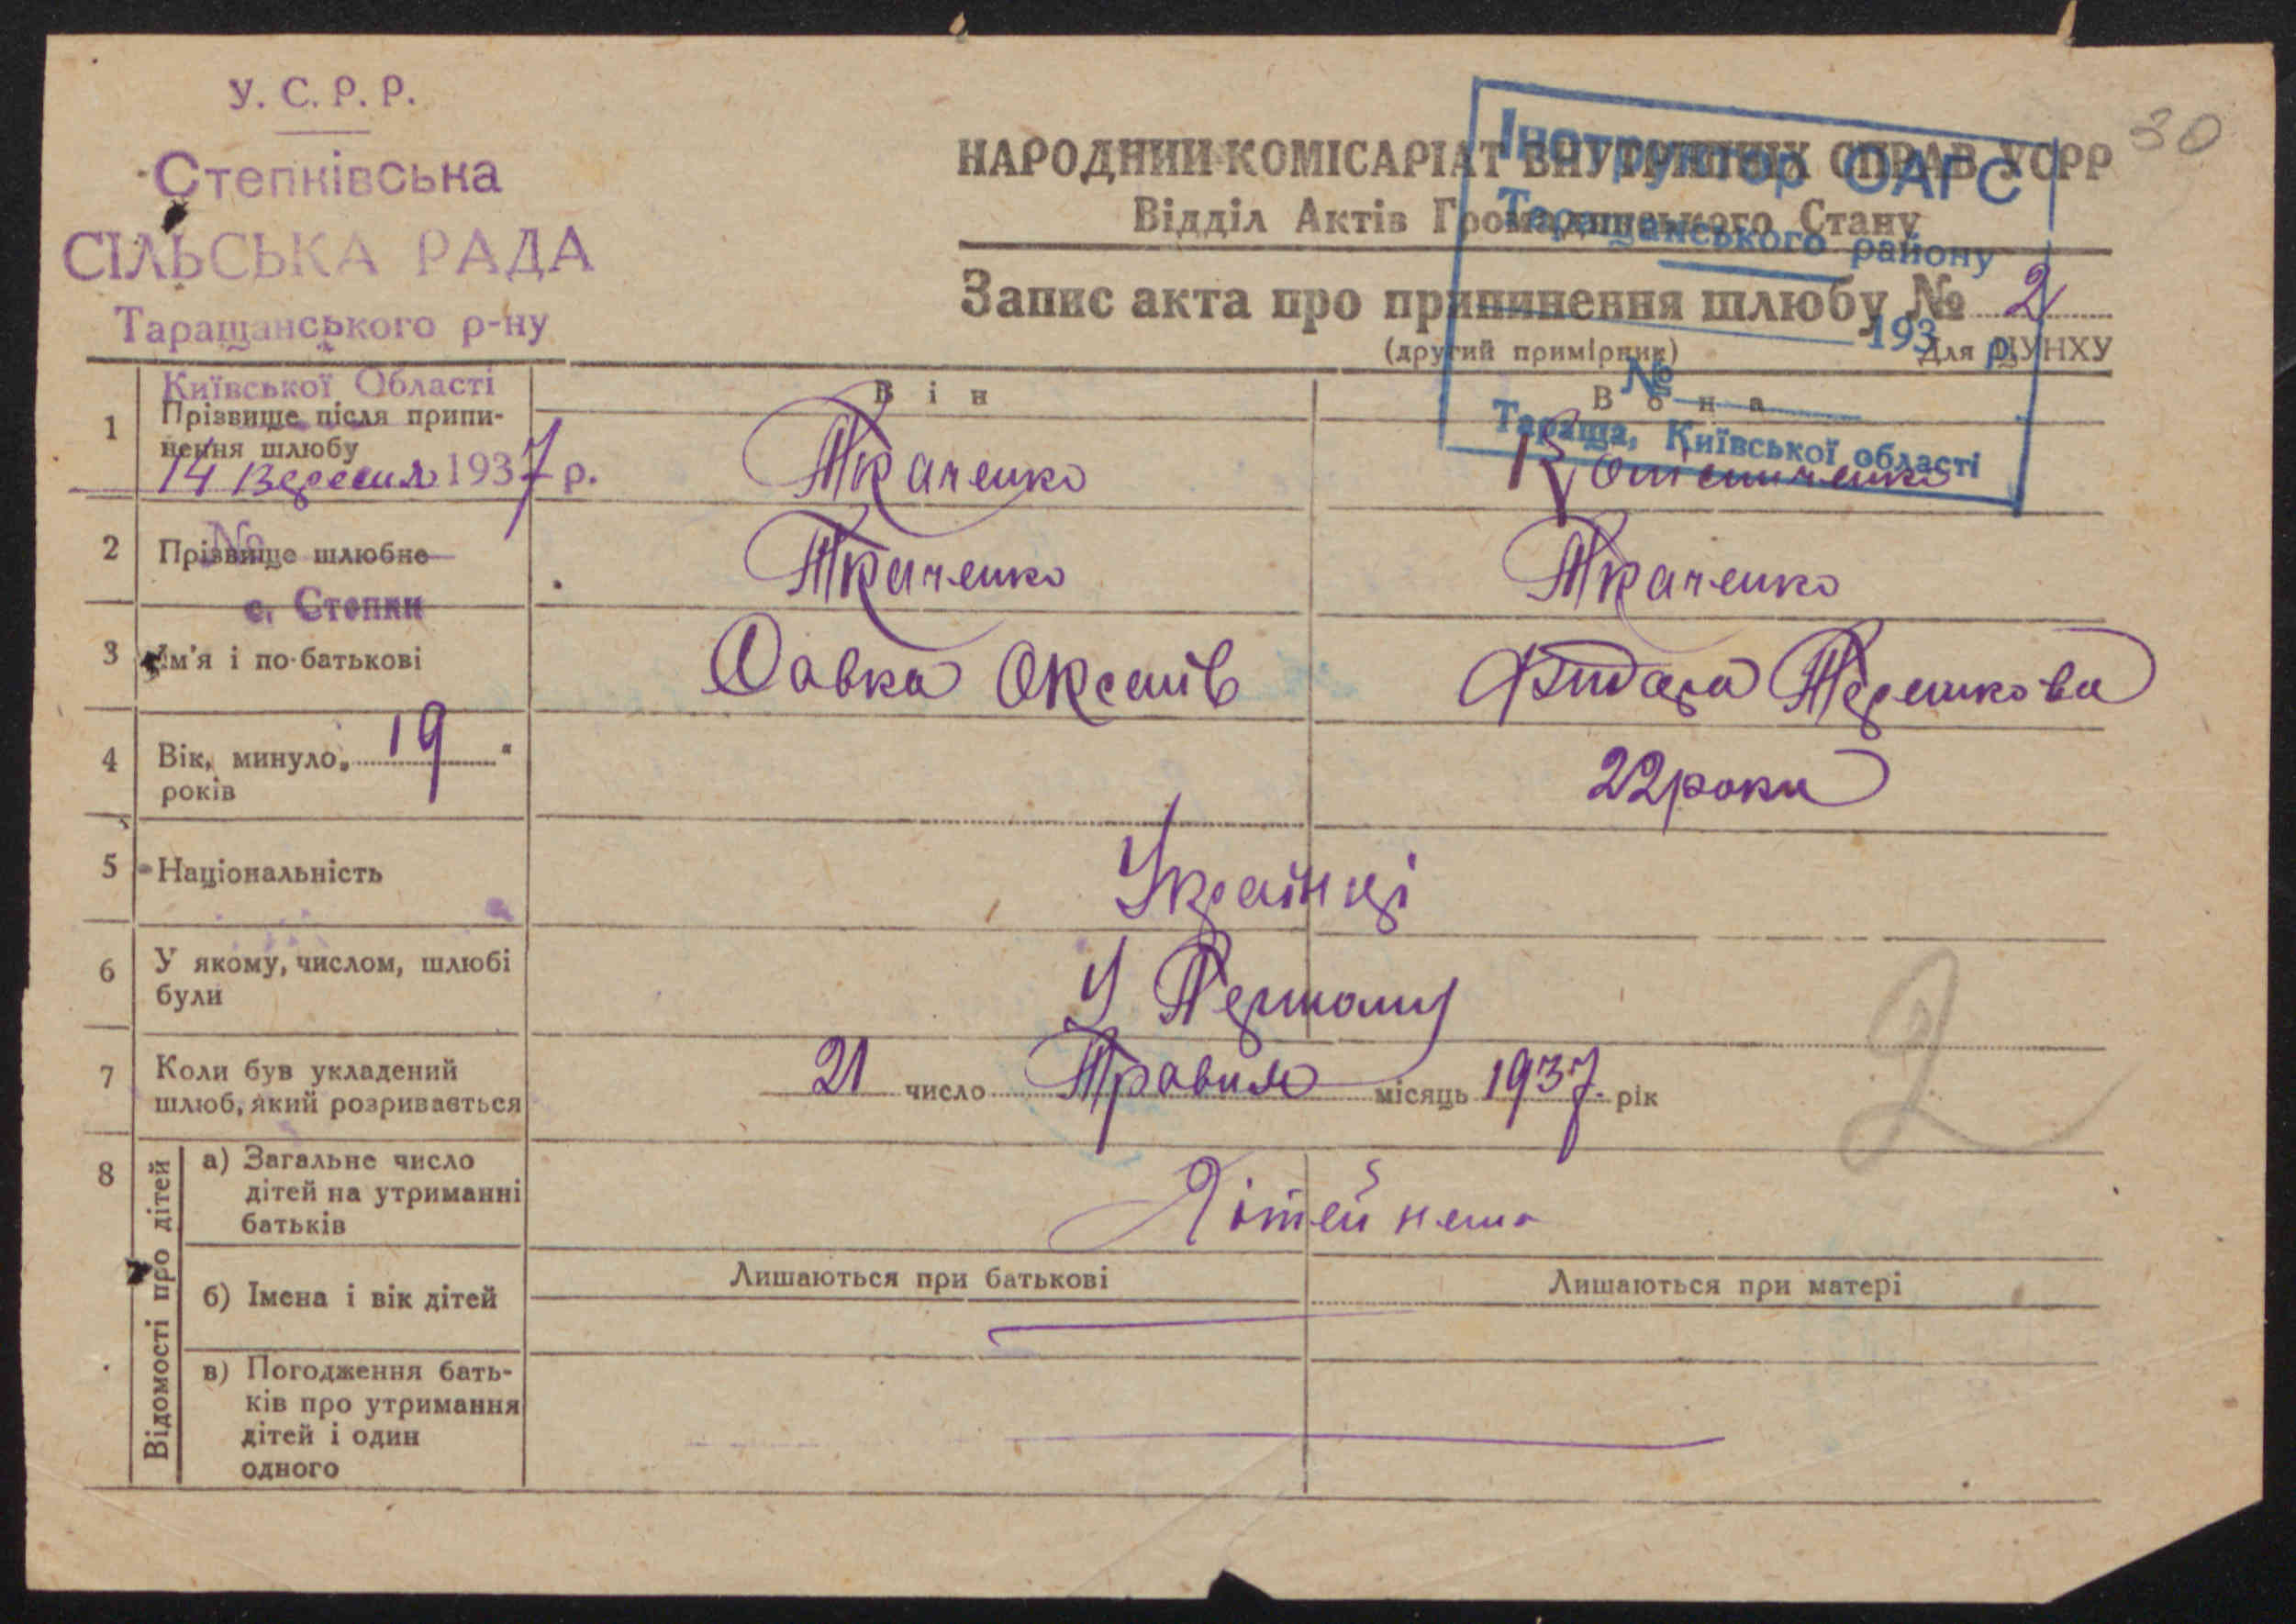 У. С. Р. Р.
Степківська
СІЛЬСЬКА РАДА
Таращанського р-ну
Київської Області
14 Вересня 1937 р.
№
с. Степки
30
НАРОДНИЙ КОМІСАРІАТ ВНУТРІШНІХ СПРАВ УСРР
Відділ Актів Громадянського Стану
Запис акта про припинення шлюбу № 2
(другий примірник)
Для ЦУНХУ
Інструктор ОАГС
Таращанського району
193 р.
№
Тараща, Київської області
Він
Вона
1 Прізвище після припинення шлюбу
Ткаченко
2 Прізвище шлюбне
Ткаченко
Ткаченко
3 Ім'я і по-батькові
Савка
4 Вік, минуло років
19
22 роки
5 Національність
Українці
6 У якому, числом, шлюбі були
У Першому
7 Коли був укладений шлюб, який розривається
21 число Травня місяць 1937 рік
2
8 Відомості про дітей
а) Загальне число дітей на утриманні батьків
Дітей нема
б) Імена і вік дітей
Лишаються при батькові
Лишаються при матері
в) Погодження батьків про утримання дітей і один одного